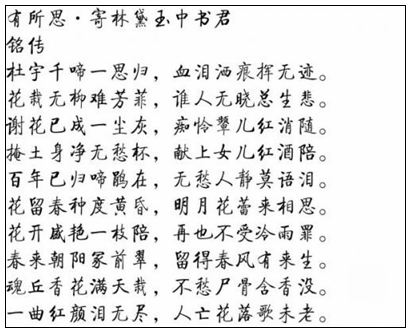 有所思·寄林黛玉中书君
铭传
杜宇千啼一思归，血泪洒痕挥无迹。
花栽无柳难芳菲，谁人无晓总生悲。
谢花已成一尘灰，痴怜颦儿红消随。
掩土身净无愁杯，献上女儿红酒陪。
百年已归啼鹃在，无愁人静莫语泪。
花留春种度黄昏，明月花蕾来相思。
花开戚艳一枝陪，再也不受泠雨罪。
春来朝阳冢前翠，留得春风有来生。
魂丘香花满天栽，不愁尸骨含香没。
一曲红颜泪无尽，人亡花落歌未老。